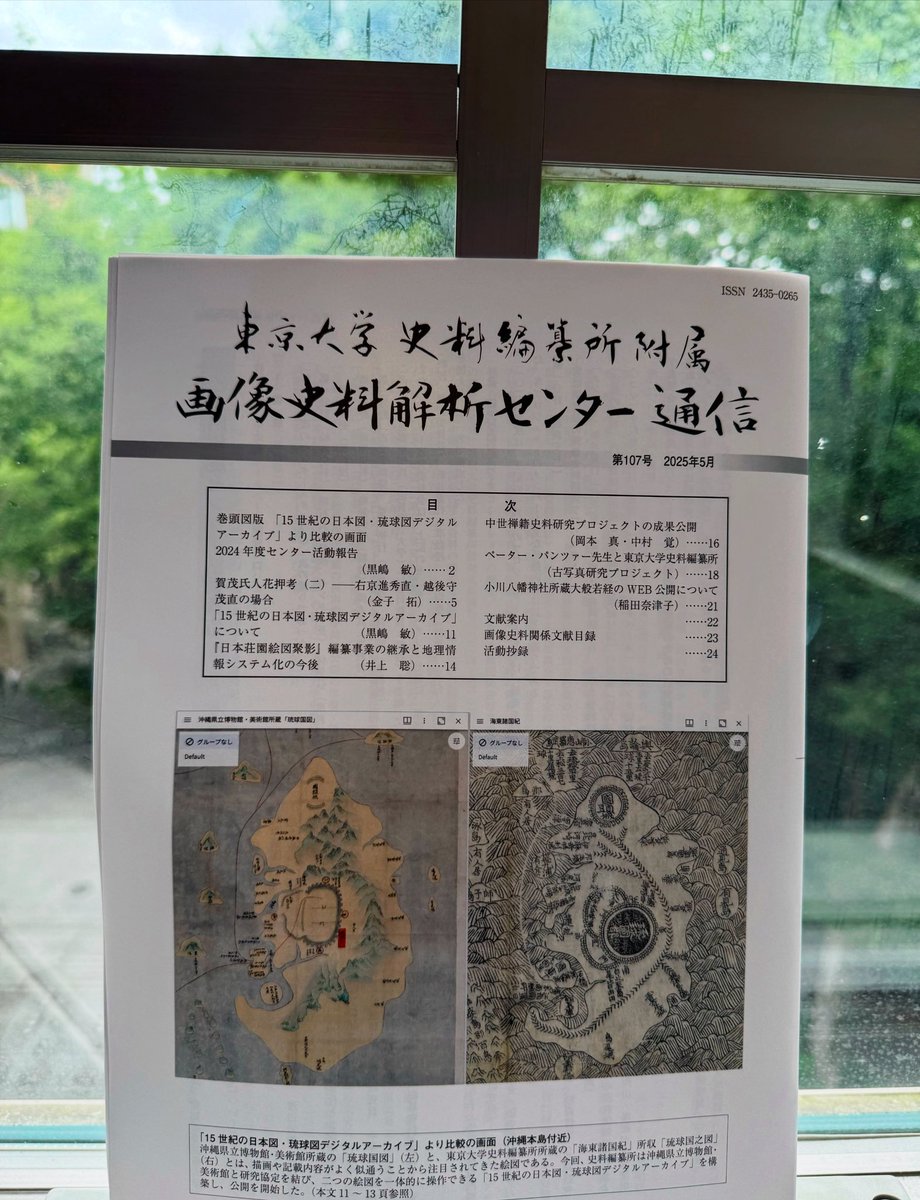 ISSN 2435-0265
東京大学史料編纂所附属
画像史料解析センター通信
第107号 2025年5月
目 次
巻頭図版 「15世紀の日本図・琉球図デジタル
アーカイブ」より比較の画面
2024年度センター活動報告
(黒嶋 敏)……2
賀茂氏人花押考(二)──右京進秀直・越後守
茂直の場合 (金子 拓)……5
「15世紀の日本図・琉球図デジタルアーカイブ」
について (黒嶋 敏)……11
『日本荘園絵図聚影』編纂事業の継承と地理情
報システム化の今後 (井上 聡)……14
中世禅籍史料研究プロジェクトの成果公開
(岡本 真・中村 覚)……16
ペーター・パンツァー先生と東京大学史料編纂所
(古写真研究プロジェクト)……18
小川八幡神社所蔵大般若経のWEB公開について
(稲田奈津子)……21
文献案内 ……22
画像史料関係文献目録 ……23
活動抄録 ……24
沖縄県立博物館・美術館所蔵「琉球国図」
グループなし
Default
海東諸国紀
グループなし
Default
「15世紀の日本図・琉球図デジタルアーカイブ」より比較の画面(沖縄本島付近)
沖縄県立博物館・美術館所蔵の「琉球国図」(左)と、東京大学史料編纂所所蔵の「海東諸国紀」所収「琉球国之図」
(右)とは、描画や記載内容がよく似通うことから注目されてきた絵図である。今回、史料編纂所は沖縄県立博物館・
美術館と研究協定を結び、二つの絵図を一体的に操作できる「15世紀の日本図・琉球図デジタルアーカイブ」を構
築し、公開を開始した。(本文11~13頁参照)